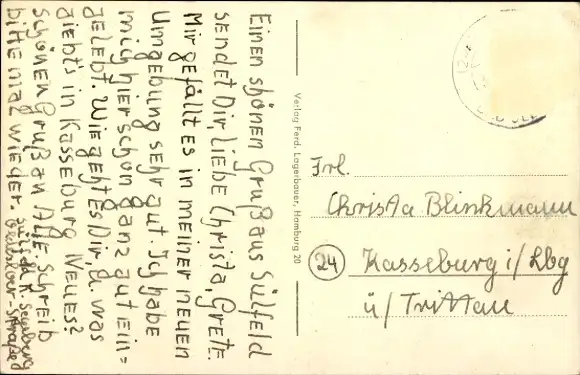 Einen shönen Gruß aus Sülfeld
sendet Dir, liebe Christa, Grete.
Mir gefällt es in meiner neuen
Umgebung sehr gut. Ich habe
mich hier schon ganz gut ein=
gelebt. Wie geht es Dir, u. was
giebt's in Kasseburg Neues?
Schönen Gruß an Alle Schreib
bitte mal wieder.
Sülfeld K. Segeberg
Verlag Ferd. Lagerbauer, Hamburg 20
Frl.
Christa Blinkmann
24 Kasseburg i/Lbg
ü/Trittau